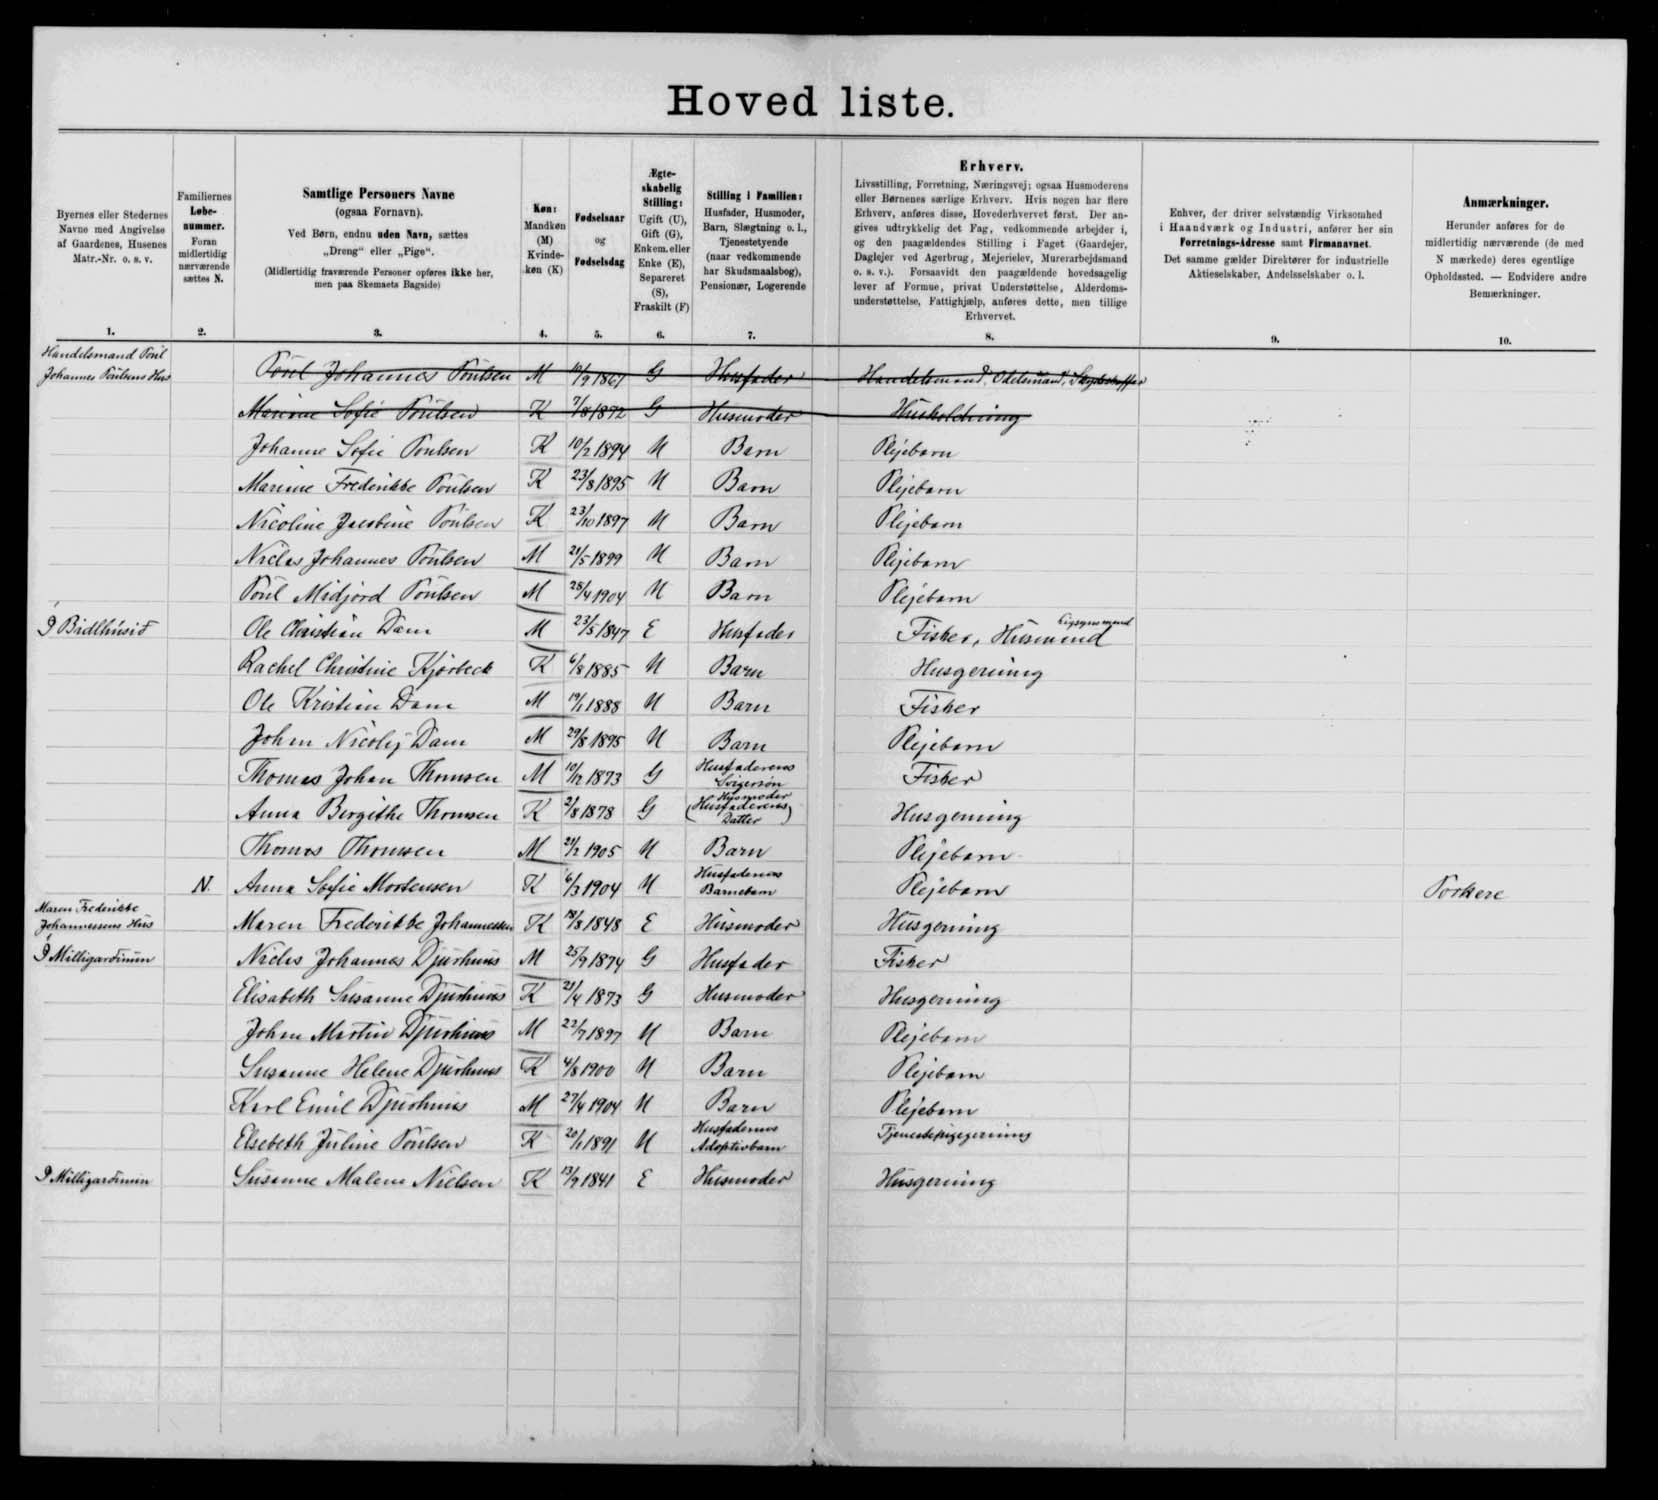 Hoved liste.
Byernes eller Stedernes Navne med Angivelse af Gaardenes, Husenes Matr.-Nr. o. s. v.
Familiernes Løbe-nummer. Foran midlertidig nærværende sættes N.
Samtlige Personers Navne (ogsaa Fornavn). Ved Børn, endnu uden Navn, sættes „Dreng“ eller „Pige“. (Midlertidig fraværende Personer opføres ikke her, men paa Skemaets Bagside)
Køn: Mandkøn (M) Kvinde-køn (K)
Fødselsaar og Fødselsdag
Ægte-skabelig Stilling: Ugift (U), Gift (G), Enkem. eller Enke (E), Separeret (S), Fraskilt (F)
Stilling i Familien: Husfader, Husmoder, Barn, Slægtning o. l., Tjenestetyende (naar vedkommende har Skudsmaalsbog), Pensionær, Logerende
Erhverv. Livsstilling, Forretning, Næringsvej; ogsaa Husmoderens eller Børnenes særlige Erhverv. Hvis nogen har flere Erhverv, anføres disse, Hovederhvervet først. Der angives udtrykkelig det Fag, vedkommende arbejder i, og den paagældendes Stilling i Faget (Gaardejer, Daglejer ved Agerbrug, Mejerielev, Murerarbejdsmand o. s. v.). Forsaavidt den paagældende hovedsagelig lever af Formue, privat Understøttelse, Alderdomsunderstøttelse, Fattighjælp, anføres dette, men tillige Erhvervet.
Enhver, der driver selvstændig Virksomhed i Haandværk og Industri, anfører her sin Forretnings-Adresse samt Firmanavnet. Det samme gælder Direktører for industrielle Aktieselskaber, Andelsselskaber o. l.
Anmærkninger. Herunder anføres for de midlertidig nærværende (de med N mærkede) deres egentlige Opholdssted. — Endvidere andre Bemærkninger.
1. 2. 3. 4. 5. 6. 7. 8. 9. 10.
Handelsmand Poul
Johannes Poulsens Hus Poul Johannes Poulsen M 10/9 1867 G Husfader Handelsmand, Odelsmand, Skydsskaffer
Marine Sofie Poulsen K 7/8 1872 G Husmoder Husholdning
Johanne Sofie Poulsen K 10/2 1894 U Barn Plejebarn
Marine Frederikke Poulsen K 23/8 1895 U Barn Plejebarn
Nicoline Jacobine Poulsen K 23/10 1897 U Barn Plejebarn
Niclas Johannes Poulsen M 21/5 1899 U Barn Plejebarn
Poul Midjord Poulsen M 25/4 1904 U Barn Plejebarn
Ole Christian Dam M 23/5 1847 E Husfader Fisker, Husmand
Rachel Christine Kjørbeck K 6/8 1885 U Barn Husgerning
Ole Kristian Dam M 19/1 1888 U Barn Fisker
Johan Nicolaj Dam M 29/8 1895 U Barn Plejebarn
Thomas Johan Thomsen M 10/12 1873 G Husfaderens Svigersøn Fisker
Anna Bergithe Thomsen K 2/8 1878 G Husmoder (Husfaderens Datter) Husgerning
Thomas Thomsen M 21/2 1905 U Barn Plejebarn
N. Anna Sofie Mortensen K 6/3 1904 U Husfaderens Barnebarn Plejebarn Porkere
Maren Frederikke
Johannessens Hus Maren Frederikke Johannessen K 18/8 1848 E Husmoder Husgerning
Í Milligarðinun Niclas Johannes Djurhuus M 25/9 1874 G Husfader Fisker
Elisabeth Susanne Djurhuus K 21/4 1873 G Husmoder Husgerning
Johan Martin Djurhuus M 22/7 1897 U Barn Plejebarn
Susanne Helene Djurhuus K 4/8 1900 U Barn Plejebarn
Karl Emil Djurhuus M 27/4 1904 U Barn Plejebarn
Elsebeth Juline Poulsen K 20/1 1891 U Husfaderens Adoptivbarn Tjenestepigegerning
Í Milligarðinun Susanne Malene Nielsen K 13/9 1841 E Husmoder Husgerning